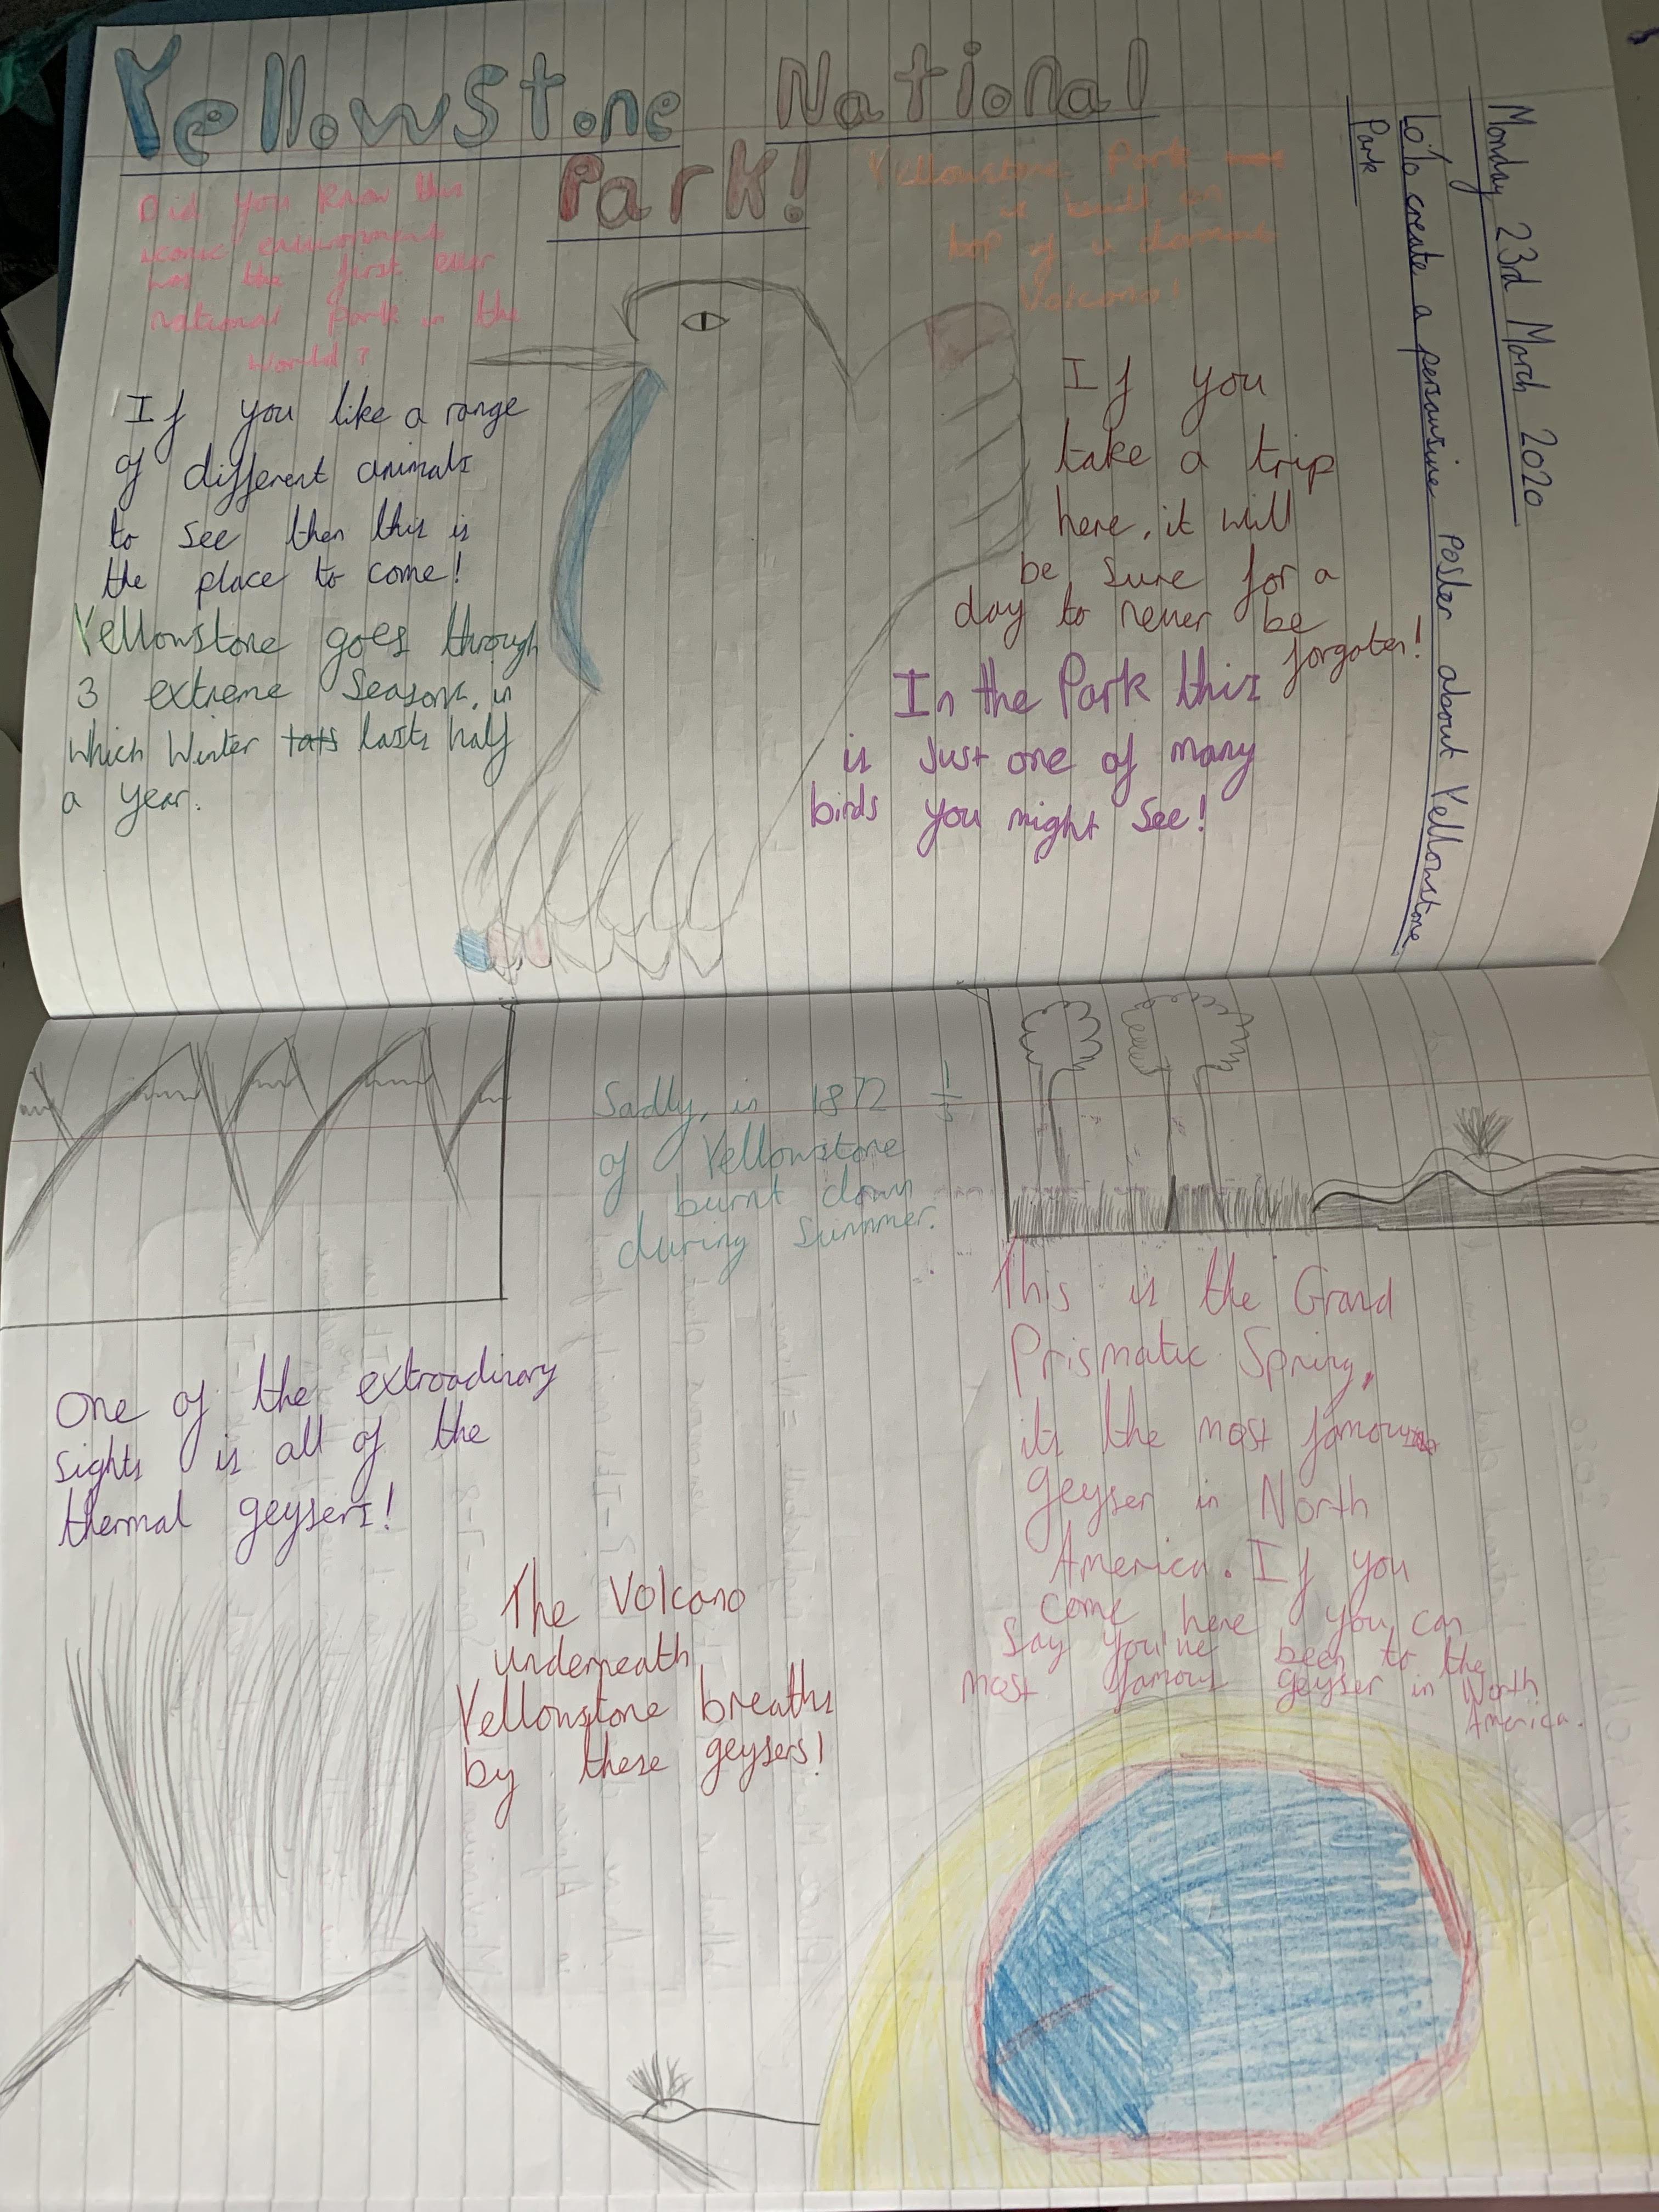 Monday 23rd March 2020
Lo: To create a persausive poster about Yellowstone
Park
Yellowstone National
Park!
Did you know this
iconic environment
was the first ever
national park in the
world?
Yellowstone Park
is built on
top of a dormant
Volcano!
If you like a range
of different animals
to see then this is
the place to come!
Yellowstone goes through
3 extreme seasons, in
which Winter lasts half
a year.
If you
take a trip
here, it will
be sure for a
day to never be
forgoten!
In the Park this
is just one of many
birds you might see!
Sadly, in 1872
of Yellowstone
burnt down
during Summer.
One of the extroadinary
sights is all of the
thermal geysers!
The Volcano
underneath
Yellowstone breaths
by these geysers!
This is the Grand
Prismatic Spring,
its the most famous
geyser in North
America. If you
come here you can
say you've been to the
most famous geyser in North
America.